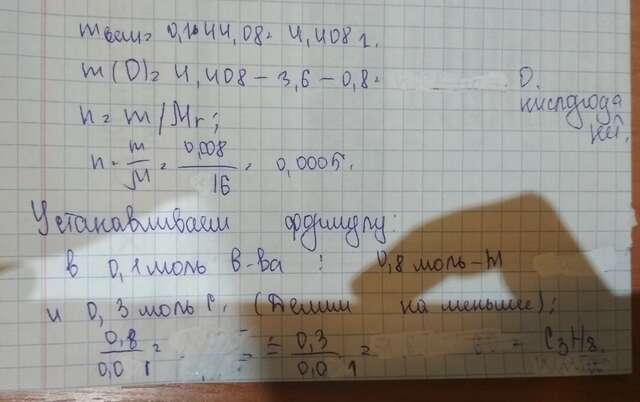 m вещ = 0,1·44,08 = 4,408 г.
m(O) = 4,408 - 3,6 - 0,8 = 0.
кислорода
нет.
n = m/Mr;
n = m/M = 0,008/16 = 0,0005.
Устанавливаем формулу:
в 0,1 моль в-ва : 0,8 моль-H
и 0,3 моль C. (Делим на меньшее);
0,8/0,01 = = 0,3/0,01 = - C3H8.